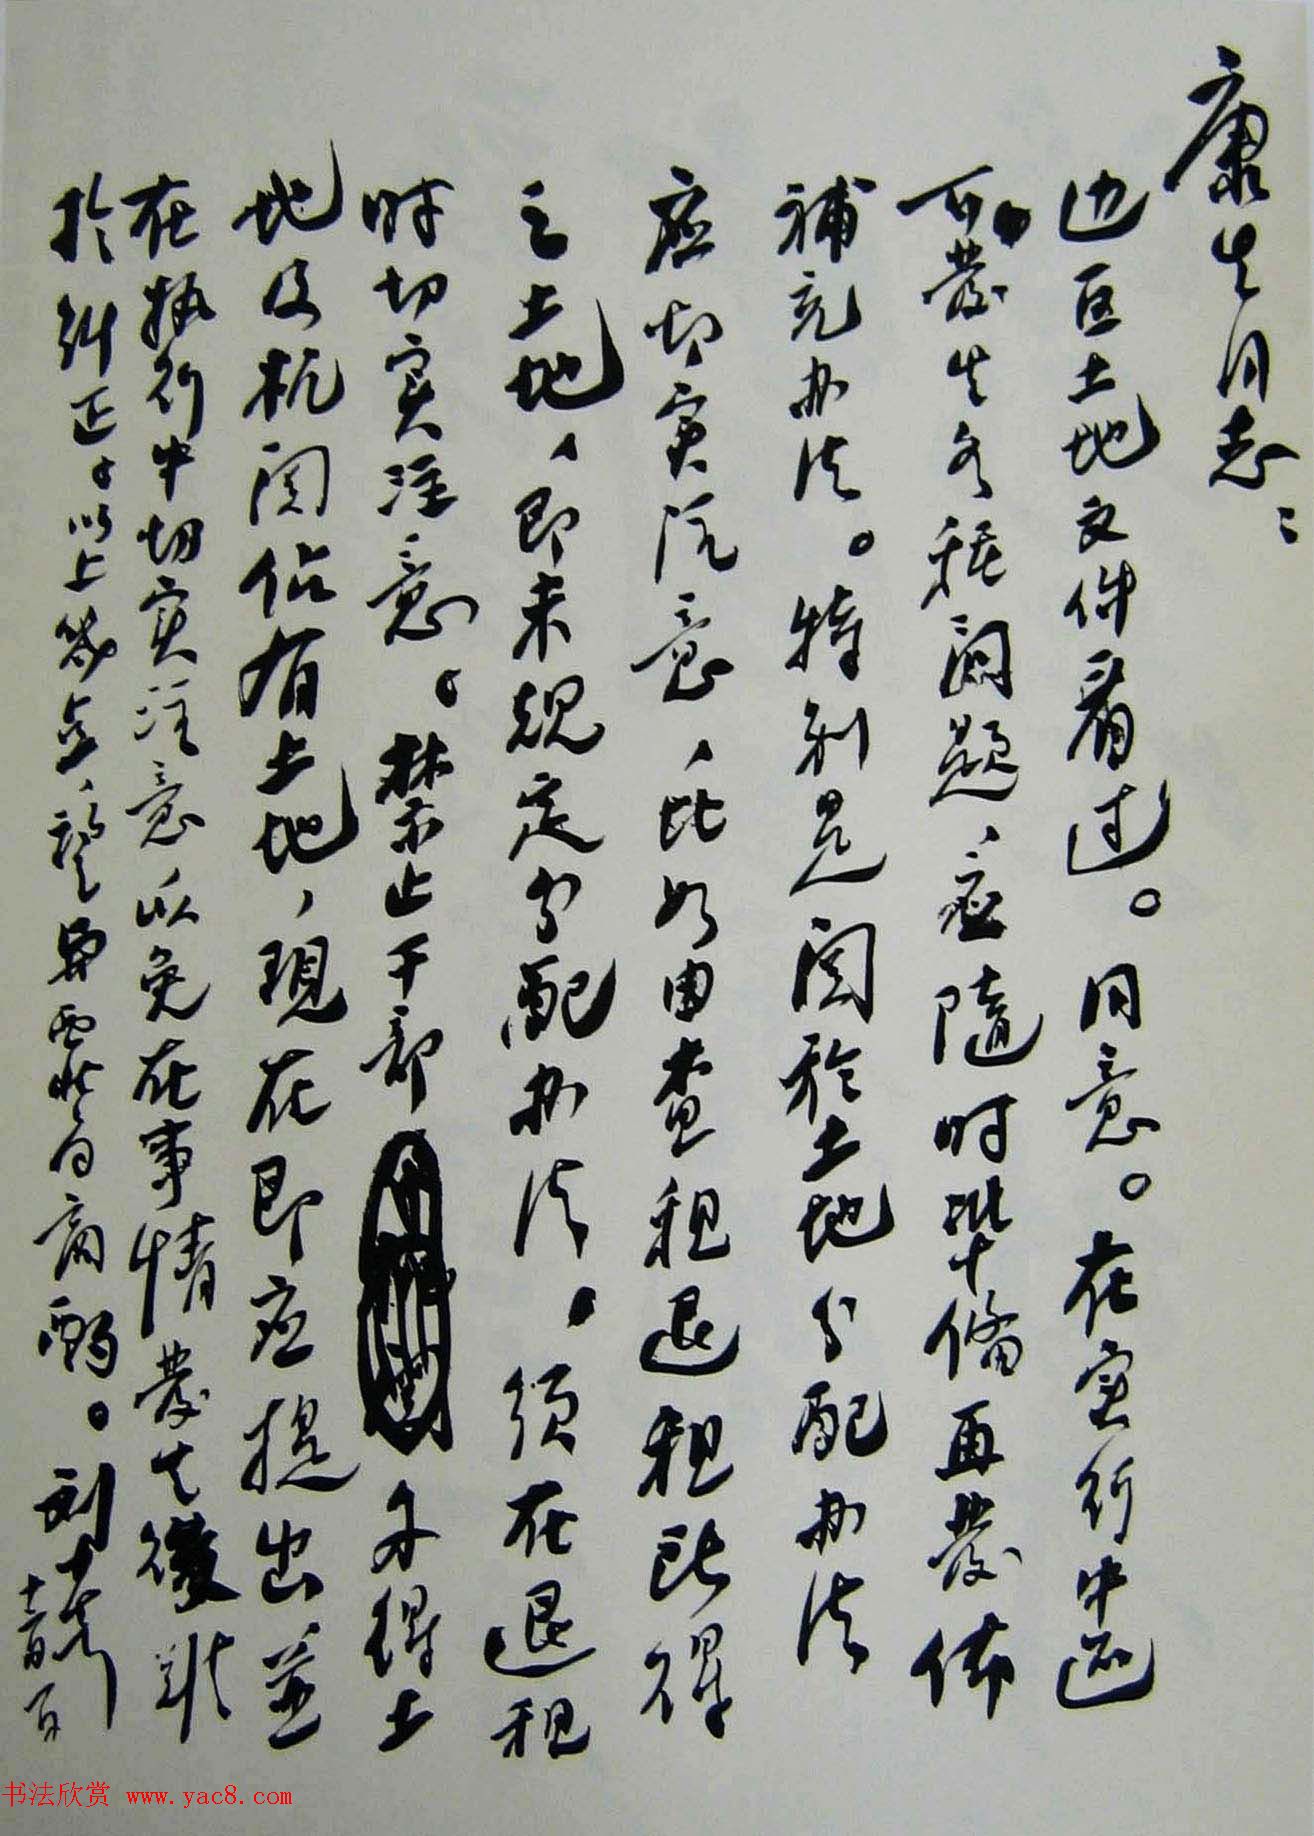 康生同志：
边区土地文件看过。同意。在实行中还
可发生各种问题、应随时准备再发佈
补充办法。特别是関於土地分配办法
应切实注意、比如由查租退租所得
之土地、即未规定分配办法。须在退租
时切实注意。禁止干部 多得土
地及机関佔有土地，现在即应提出並
在执行中切实注意以免在事情发生後难
於纠正。以上几点，望与雲台商酌。刘少奇
十一月
书法欣赏 www.yac8.com